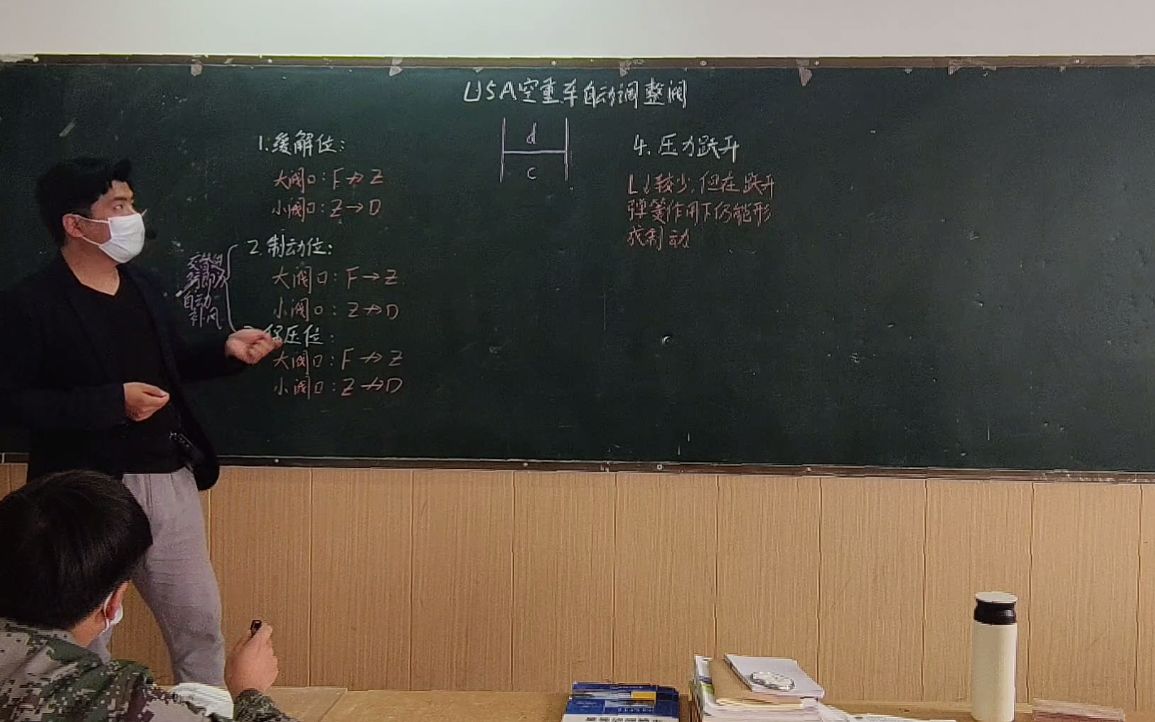 USA空重车自动调整阀
1.缓解位:
大阀口:F↛Z
小阀口:Z→D
2.制动位:
大阀口:F→Z
小阀口:Z↛D
自动
补风
3.保压位:
大阀口:F↛Z
小阀口:Z↛D
d
C
4.压力跃升
较少,但在跃升
弹簧作用下仍能形
成制动